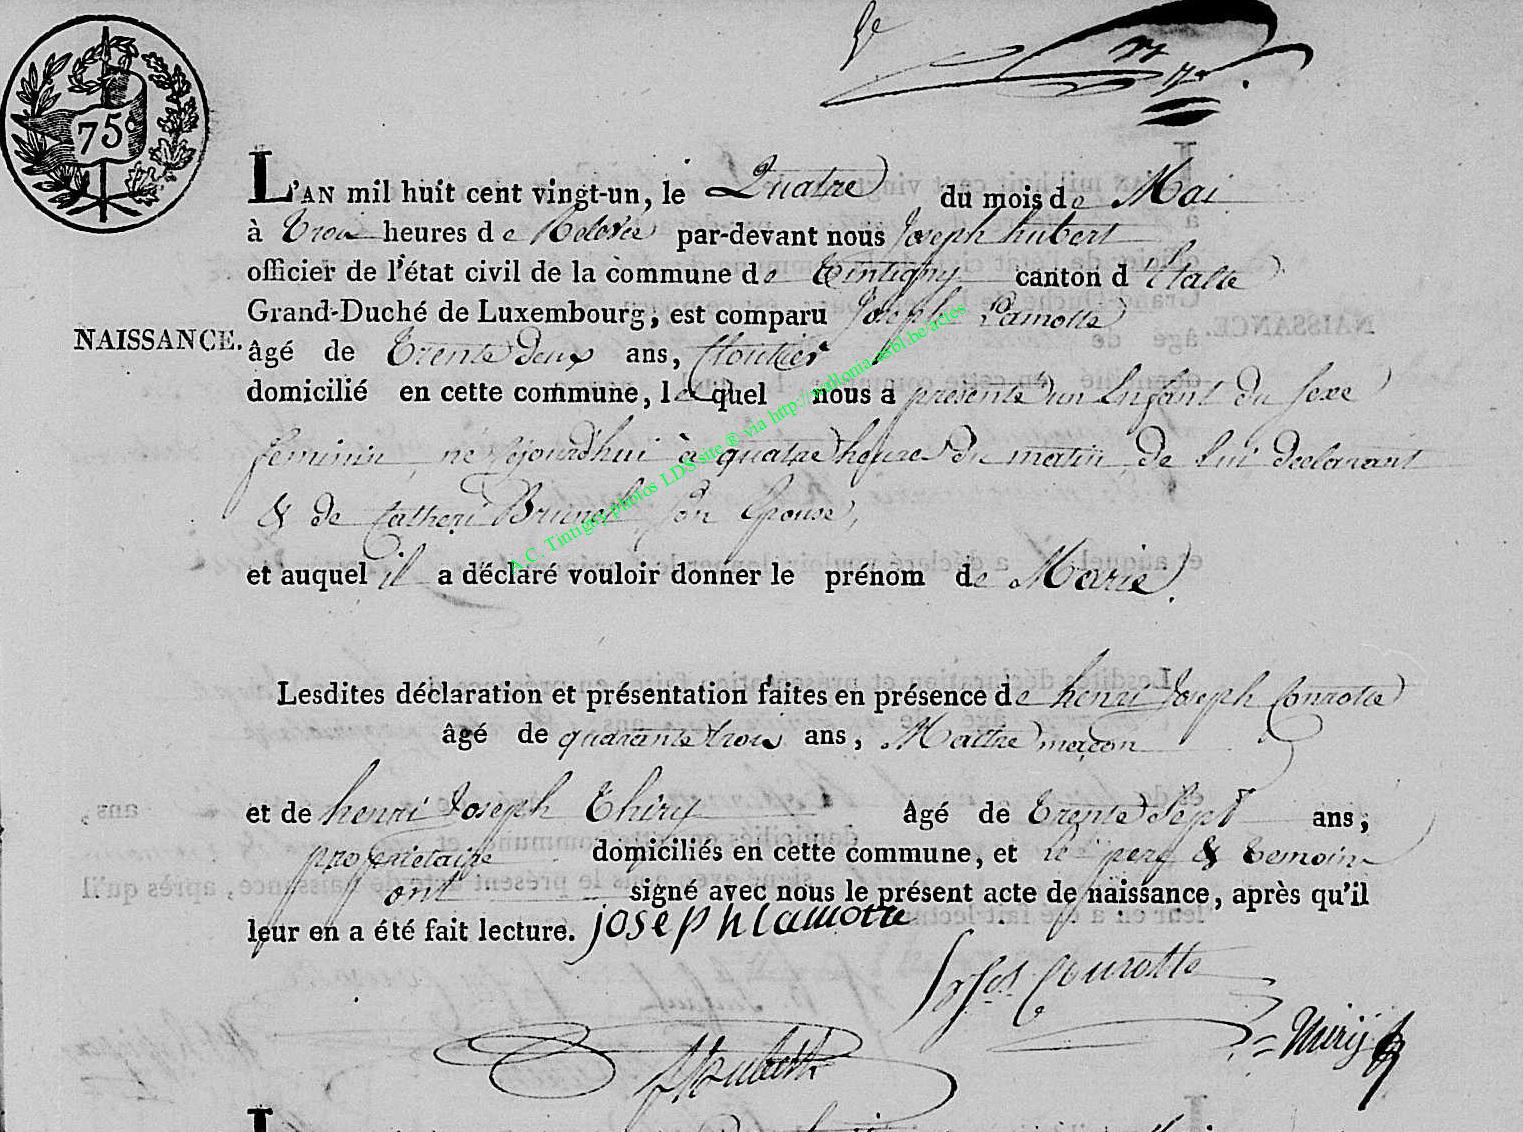 75c
L'AN mil huit cent vingt-un, le Quatre du mois de Mai
à trois heures de Relevée par-devant nous Joseph hubert
officier de l'état civil de la commune de Tintigny canton d'Etalle
Grand-Duché de Luxembourg, est comparu Joseph Lamotte
NAISSANCE.
âgé de trente deux ans, Cloutier
domicilié en cette commune, lequel nous a présenté un Enfant du sexe
feminin, né cejourd'hui à quatre heures du matin, de lui declarant
& de Catheri Brunel, son Epouse,
et auquel il a déclaré vouloir donner le prénom de Marie.
Lesdites déclaration et présentation faites en présence de henri Joseph Courotte
âgé de quarante trois ans, Maitre maçon
et de henri Joseph Thiry âgé de trente Sept ans,
proprietaire domiciliés en cette commune, et le pere & temoins
ont signé avec nous le présent acte de naissance, après qu'il
leur en a été fait lecture. joseph lamotte
Courotte
Thirij
Hubert
A.C. Tintigny photos LDS site ® via http://wallonia.asbl.be/actes